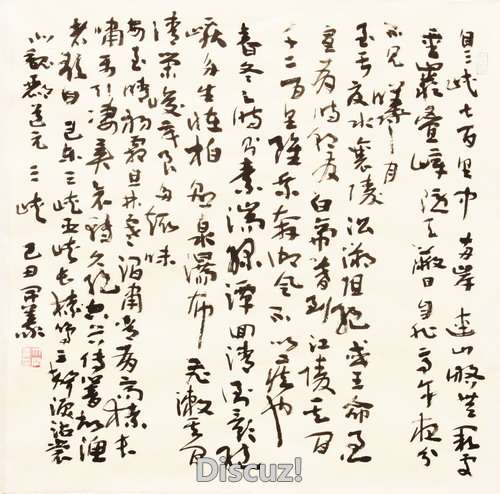 自三峡七百里中两岸连山略无阙处
重岩叠嶂隐天蔽日自非亭午夜分
不见曦月
至于夏水襄陵沿溯阻绝或王命急
宣有时朝发白帝暮到江陵其间
千二百里虽乘奔御风不以疾也
春冬之时则素湍绿潭回清倒影绝
巘多生怪柏悬泉瀑布飞漱其间
清荣峻茂良多趣味
每至晴初霜旦林寒涧肃常有高猿长
啸属引凄异哀转久绝空谷传响故渔
者歌曰巴东三峡巫峡长猿鸣三声泪沾裳
郦道元三峡 己丑
Discuz!